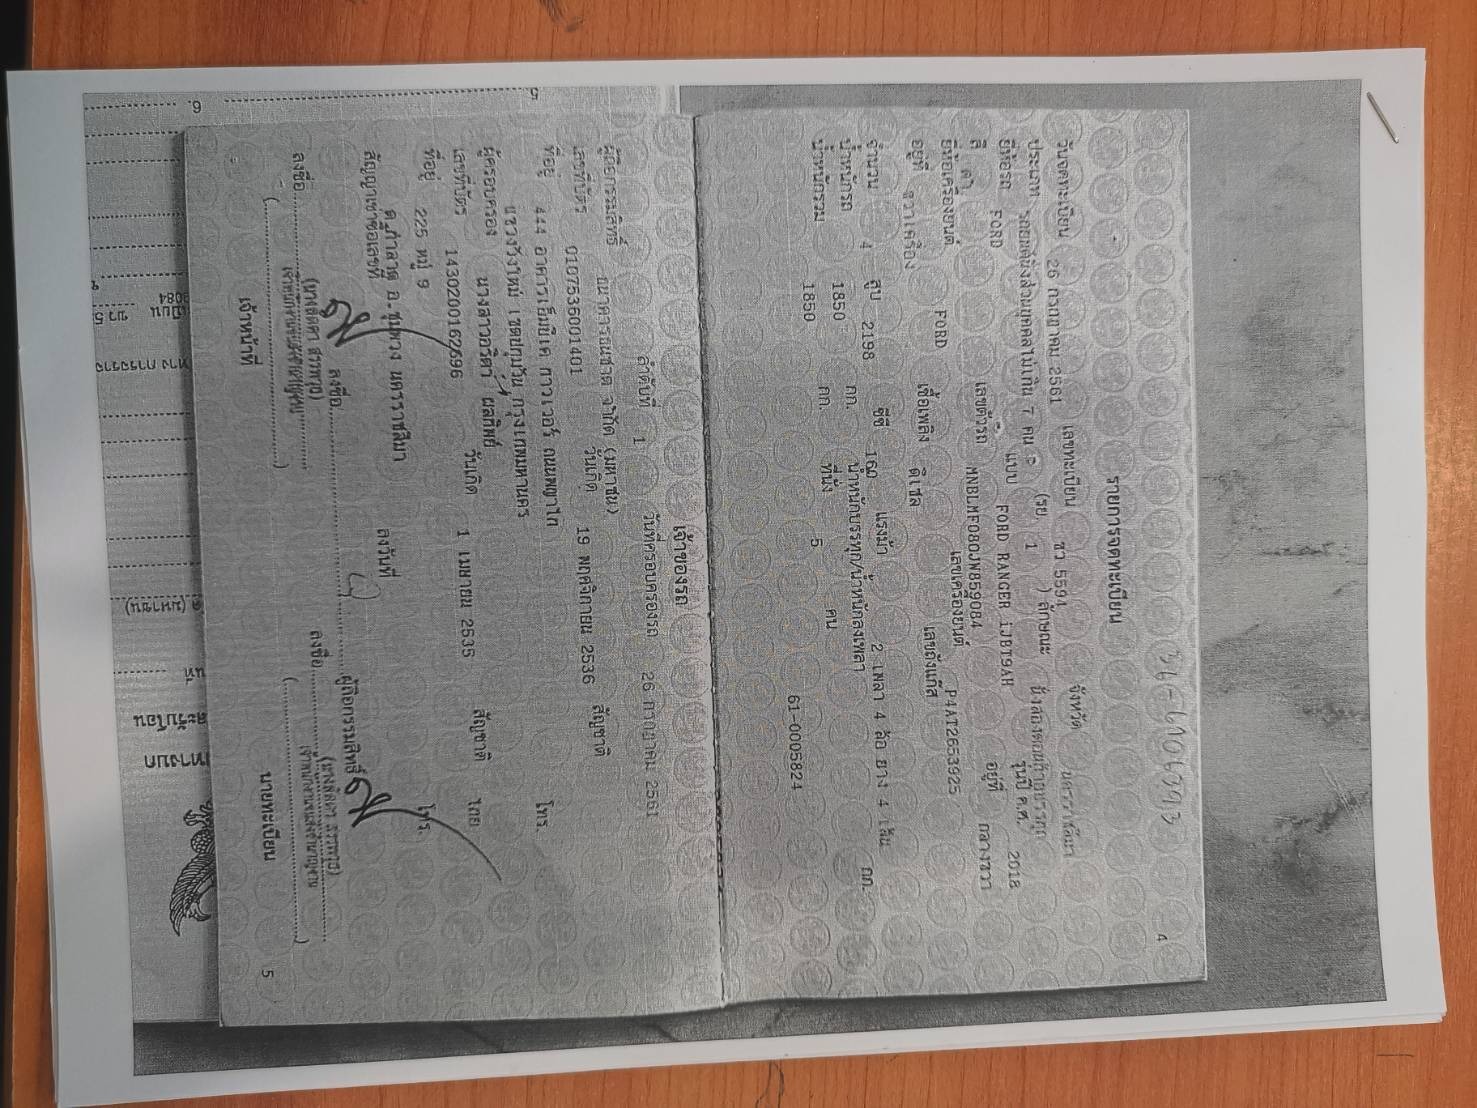 4
34-6106393
รายการจดทะเบียน
วันจดทะเบียน 26 กรกฎาคม 2561 เลขทะเบียน ขว 5594 จังหวัด นครราชสีมา
ประเภท รถยนต์นั่งส่วนบุคคลไม่เกิน 7 คน (รย. 1 ) ลักษณะ นั่งสองตอนท้ายบรรทุก
ยี่ห้อรถ FORD แบบ FORD RANGER 1JBT9AH รุ่นปี ค.ศ. 2018
สี ดำ เลขตัวรถ MNBLMF080JW859084 อยู่ที่ กลางขวา
ยี่ห้อเครื่องยนต์ FORD เลขเครื่องยนต์ P4AT2653925
อยู่ที่ ขวาเครื่อง เชื้อเพลิง ดีเซล เลขถังแก๊ส
จำนวน 4 สูบ 2198 ซีซี 160 แรงม้า 2 เพลา 4 ล้อ ยาง 4 เส้น
น้ำหนักรถ 1850 กก. น้ำหนักบรรทุก/น้ำหนักลงเพลา กก.
น้ำหนักรวม 1850 กก. ที่นั่ง 5 คน
61-0005824
เจ้าของรถ
ลำดับที่ 1 วันที่ครอบครองรถ 26 กรกฎาคม 2561
ผู้ถือกรรมสิทธิ์ ธนาคารธนชาต จำกัด (มหาชน)
เลขที่บัตร 0107536001401 วันเกิด 19 พฤศจิกายน 2536 สัญชาติ
ที่อยู่ 444 อาคารเอ็มบีเค ทาวเวอร์ ถนนพญาไท โทร.
แขวงวังใหม่ เขตปทุมวัน กรุงเทพมหานคร
ผู้ครอบครอง นางสาวอริตา ผลทิพย์
เลขที่บัตร 1430200162696 วันเกิด 1 เมษายน 2535 สัญชาติ ไทย
ที่อยู่ 225 หมู่ 9 โทร.
ต.ท่าลาด อ.ชุมพวง นครราชสีมา
สัญญาเช่าซื้อเลขที่ ลงวันที่
ลงชื่อ ผู้ถือกรรมสิทธิ์
ลงชื่อ ลงชื่อ
เจ้าหน้าที่ นายทะเบียน
5
5.
6.